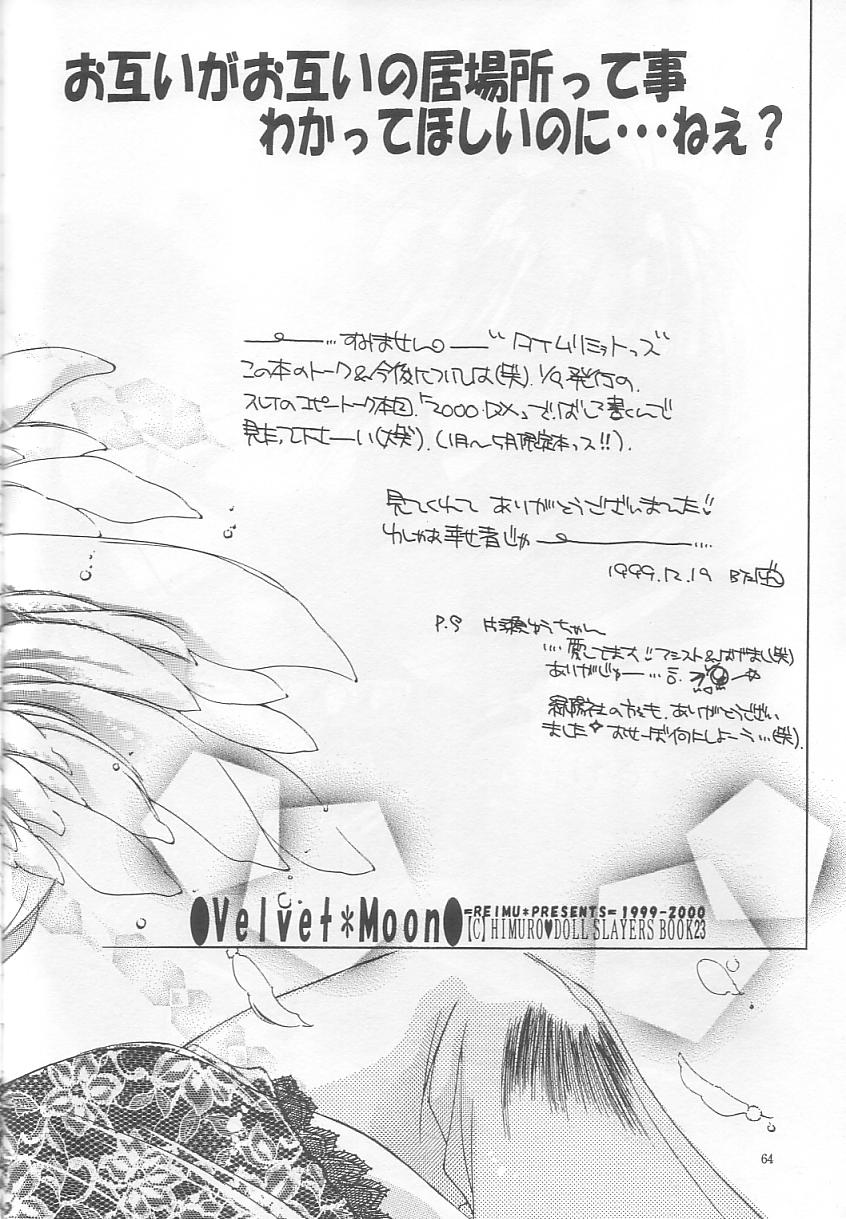 お互いがお互いの居場所って事
わかってほしいのに･･･ねぇ?
…すみません。 "タイムリミットっス"
この本のトーク&今後については(笑). 1/9発行の.
スレTのコピートーク本②「2000・DX」で.ばしっ書くんで
見たって下せーい(大笑). (1月〜5月限定本っス!!).
見てくれて ありがとうございました!
わしゃあ幸せ者じゃ ‥‥
1999.12.19
P.S 片瀬ゆうちゃん
‥‥愛してます!! アシスト&はげまし(笑)
ありがじゅー…
緑陽社の方も、ありがとうござい
ました おせーぼ何にしよーう…(笑).
●Velvet*Moon●
=REIMU*PRESENTS= 1999-2000
【C】HIMURO♥DOLL SLAYERS BOOK23
64